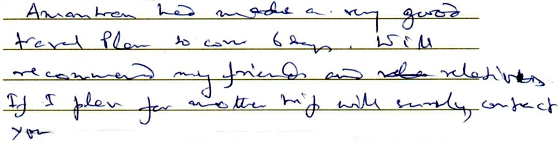 Amantran had made a very good
travel Plan to cover 6 days. Will
recommend my friends and relatives
If I plan for another trip will surely contact
you